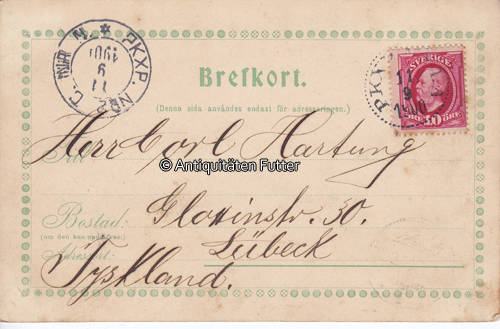 PKXP. Nº2
11
9
1901
SVERIGE
PKXP
11
9
1900
10 ÖRE
Brefkort.
(Denna sida användes endast för adresseringen.)
Till
Herr Carl Hartung
© Antiquitäten Futter
Bostad:
(om den kan uppgifvas)
Gloxinstr. 30.
Adressort:
Lübeck
Tyskland.